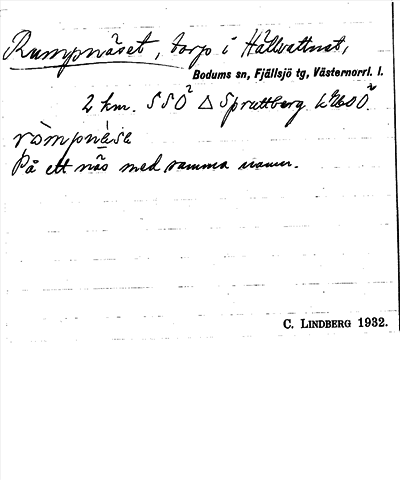 Rumpnäset, torp i Hällvattnet,
Bodums sn, Fjällsjö tg, Västernorrl. l.
2 km. SSÖ △ Spruttberg
På ett näs med samma namn.
C. LINDBERG 1932.